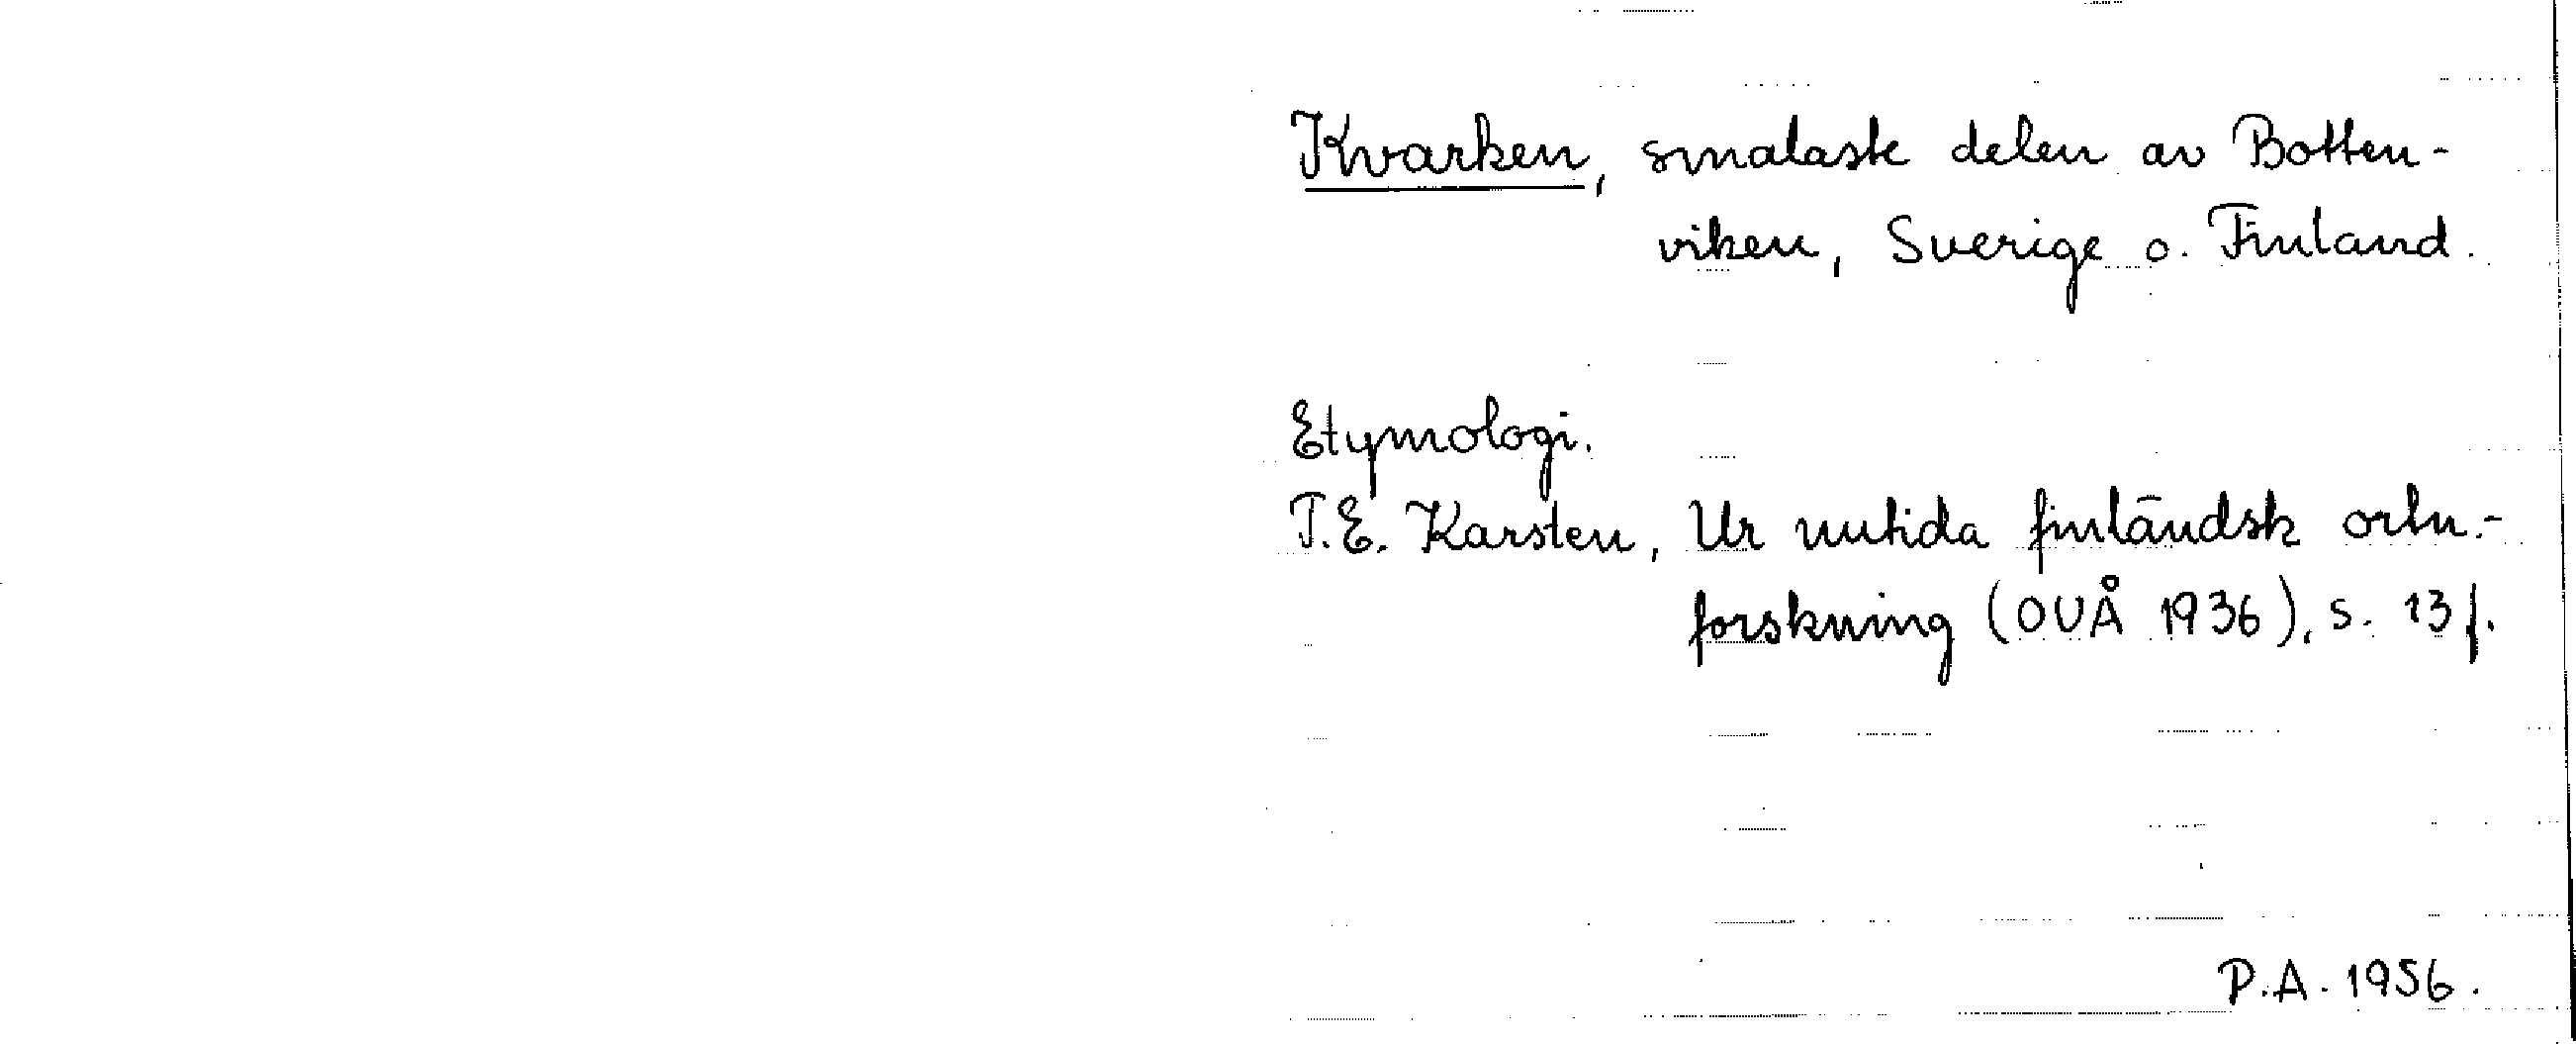 Kvarken, smalaste delen av Botten-
viken, Sverige o. Finland.
Etymologi.
T.E. Karsten, Ur nutida finländsk ortn.-
forskning (OUÅ 1936), s. 13 f.
P.A. 1956.